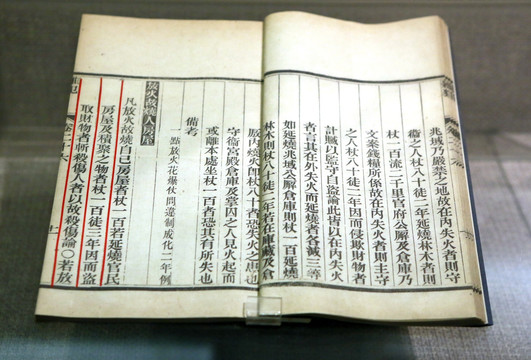 兆域乃嚴禁之地故在內失火者則守
衛之人杖八十徒二年延燒林木者則
杖一百流二千里官府公廨及倉庫乃
文案錢糧所係故在內失火者則主守
之人杖八十徒二年因而侵欺財物者
計贓以監守自盜論此皆以在內失火
者言其在外失火而延燒者各減三等
如延燒兆域公廨倉庫則杖一百延燒
林木則杖八十徒二年若在庫藏及倉
內燃火即杖八十者恐失火之患也
守衛宮殿倉庫及掌囚之人見火起而
或離本處坐杖一百者恐其有所失也
備考
一點放火花爆仗問違制成化二年例
放火故燒人房屋
凡放火故燒自己房屋者杖一百若延燒官民
房屋及積聚之物者杖一百徒三年因而盜
取財物者斬殺傷人者以故殺傷論○若放
卷二十六
十一